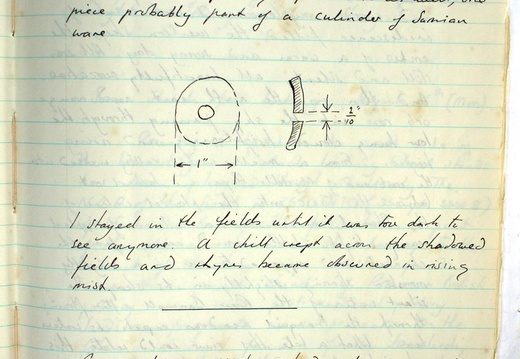 piece probably part of a cylinder of Samian
ware
1"
1/10"
I stayed in the fields until it was too dark to
see anymore. A chill crept across the shadowed
fields and rhynes became obscured in rising
mist.